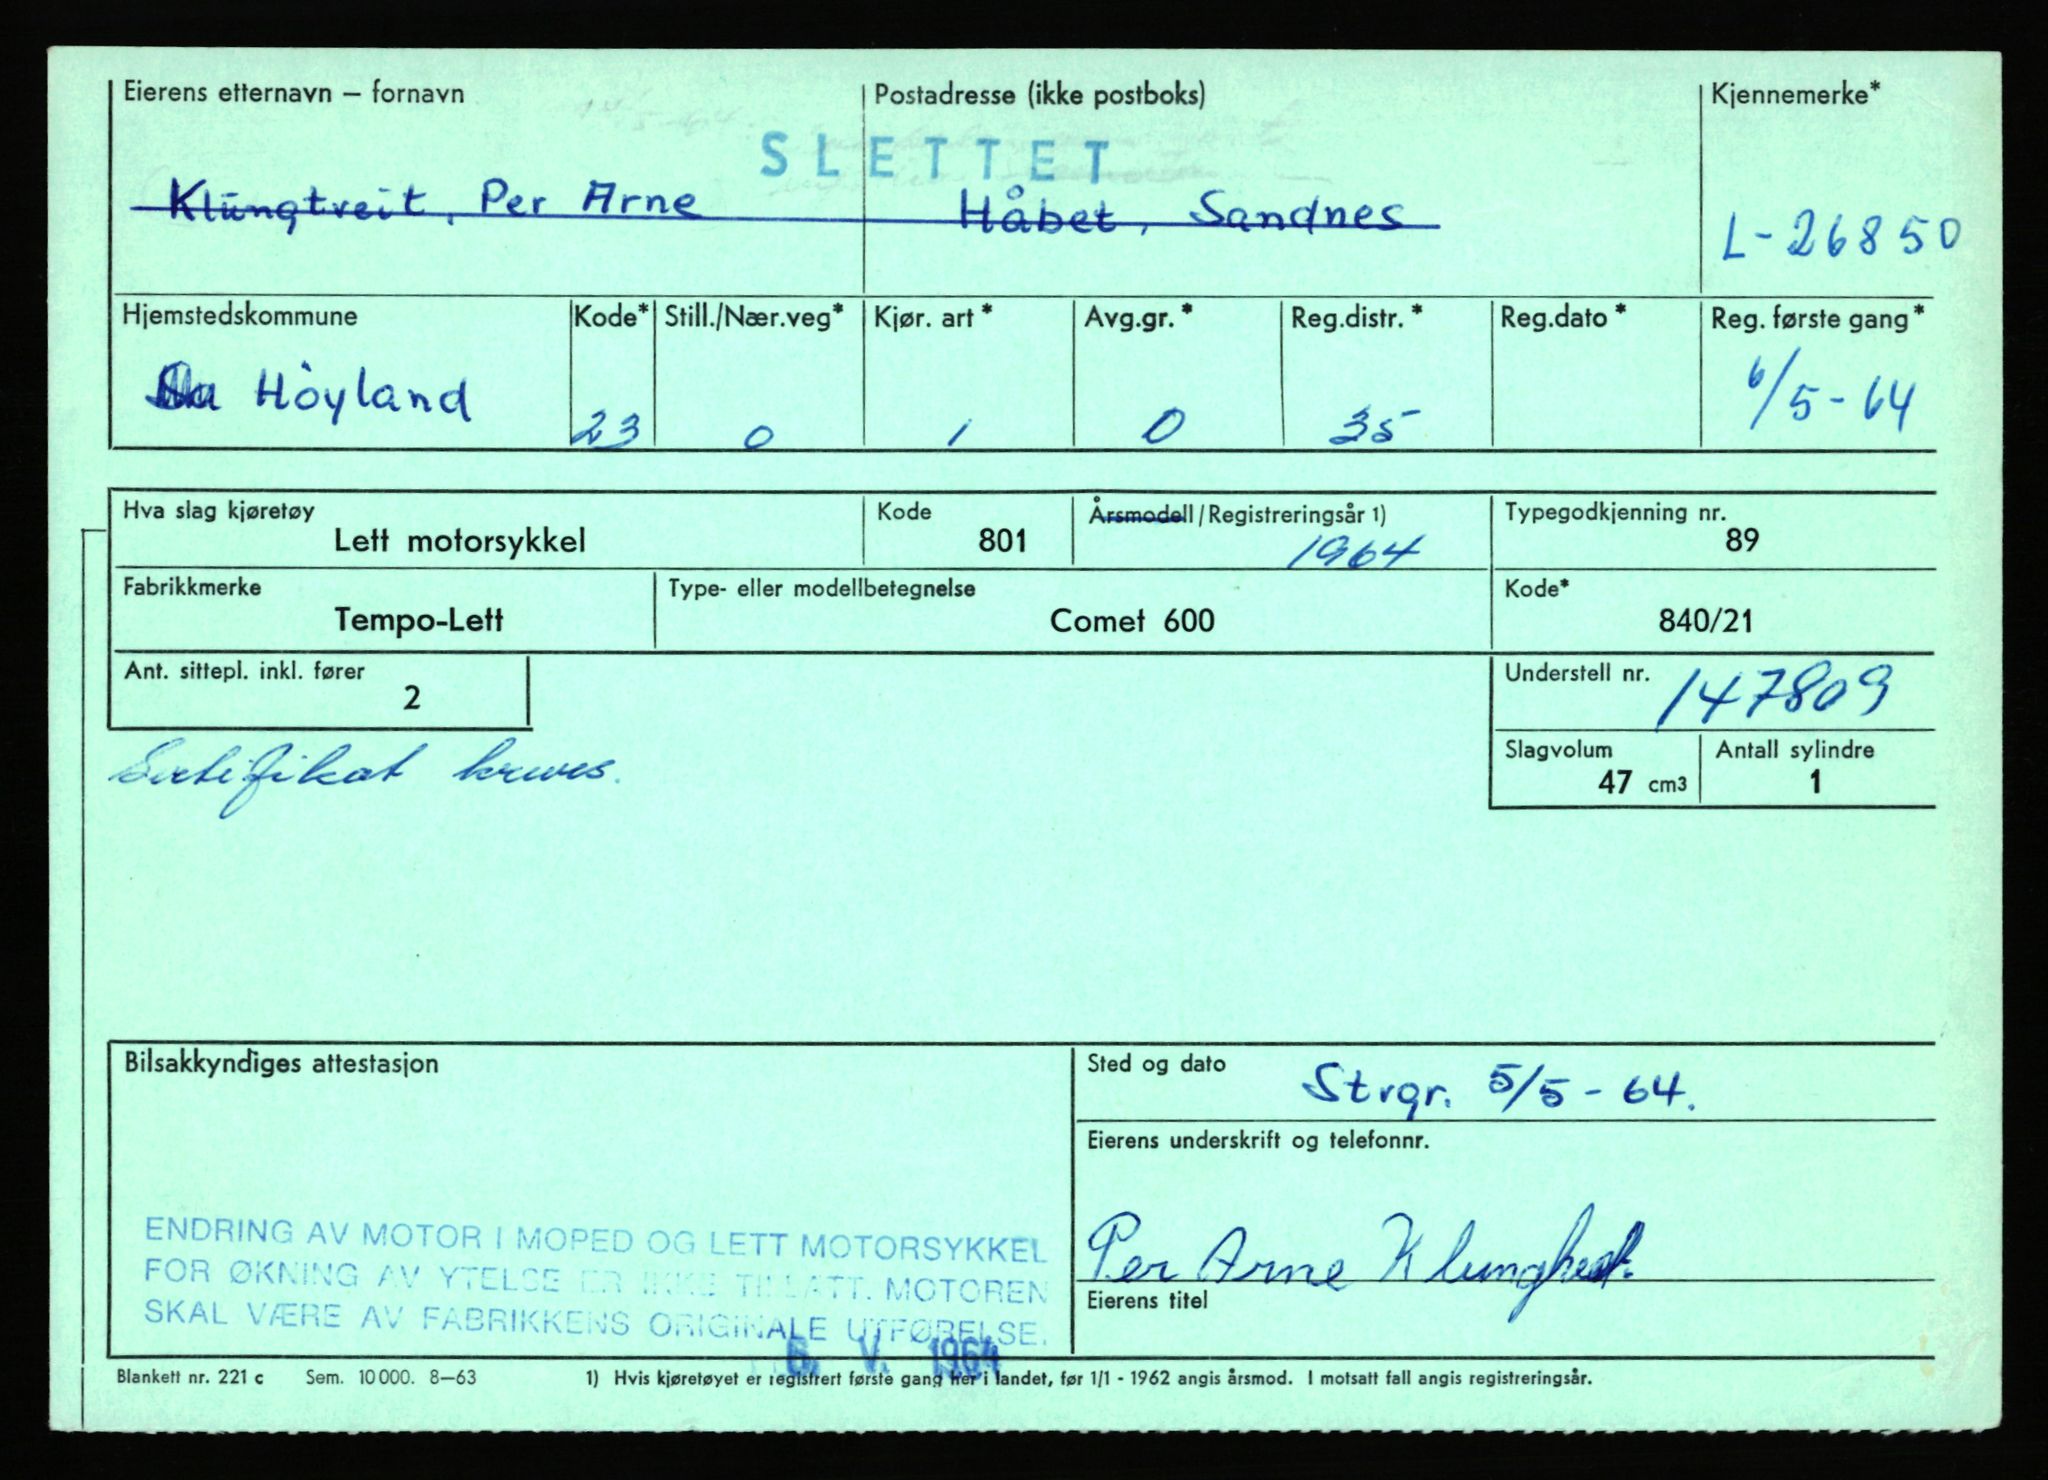 Eierens etternavn – fornavn
Postadresse (ikke postboks)
Kjennemerke*
SLETTET
Klungtveit, Per Arne
Håbet, Sandnes
L-26850
Hjemstedskommune
Kode*
Still./Nær.veg*
Kjør. art*
Avg.gr.*
Reg.distr.*
Reg.dato*
Reg. første gang*
Höyland
23
0
1
0
35
6/5-64
Hva slag kjøretøy
Lett motorsykkel
Kode
801
Årsmodell/Registreringsår 1)
1964
Typegodkjenning nr.
89
Fabrikkmerke
Tempo-Lett
Type- eller modellbetegnelse
Comet 600
Kode*
840/21
Ant. sittepl. inkl. fører
2
Understell nr.
147809
Sertifikat kreves.
Slagvolum
47 cm3
Antall sylindre
1
Bilsakkyndiges attestasjon
Sted og dato
Strgr. 5/5-64.
Eierens underskrift og telefonnr.
Per Arne
ENDRING AV MOTOR I MOPED OG LETT MOTORSYKKEL
FOR ØKNING AV YTELSE ER IKKE TILLATT. MOTOREN
SKAL VÆRE AV FABRIKKENS ORIGINALE UTFØRELSE.
Eierens titel
6. V. 1964
Blankett nr. 221 c Sem. 10 000. 8–63
1) Hvis kjøretøyet er registrert første gang her i landet, før 1/1 - 1962 angis årsmod. I motsatt fall angis registreringsår.